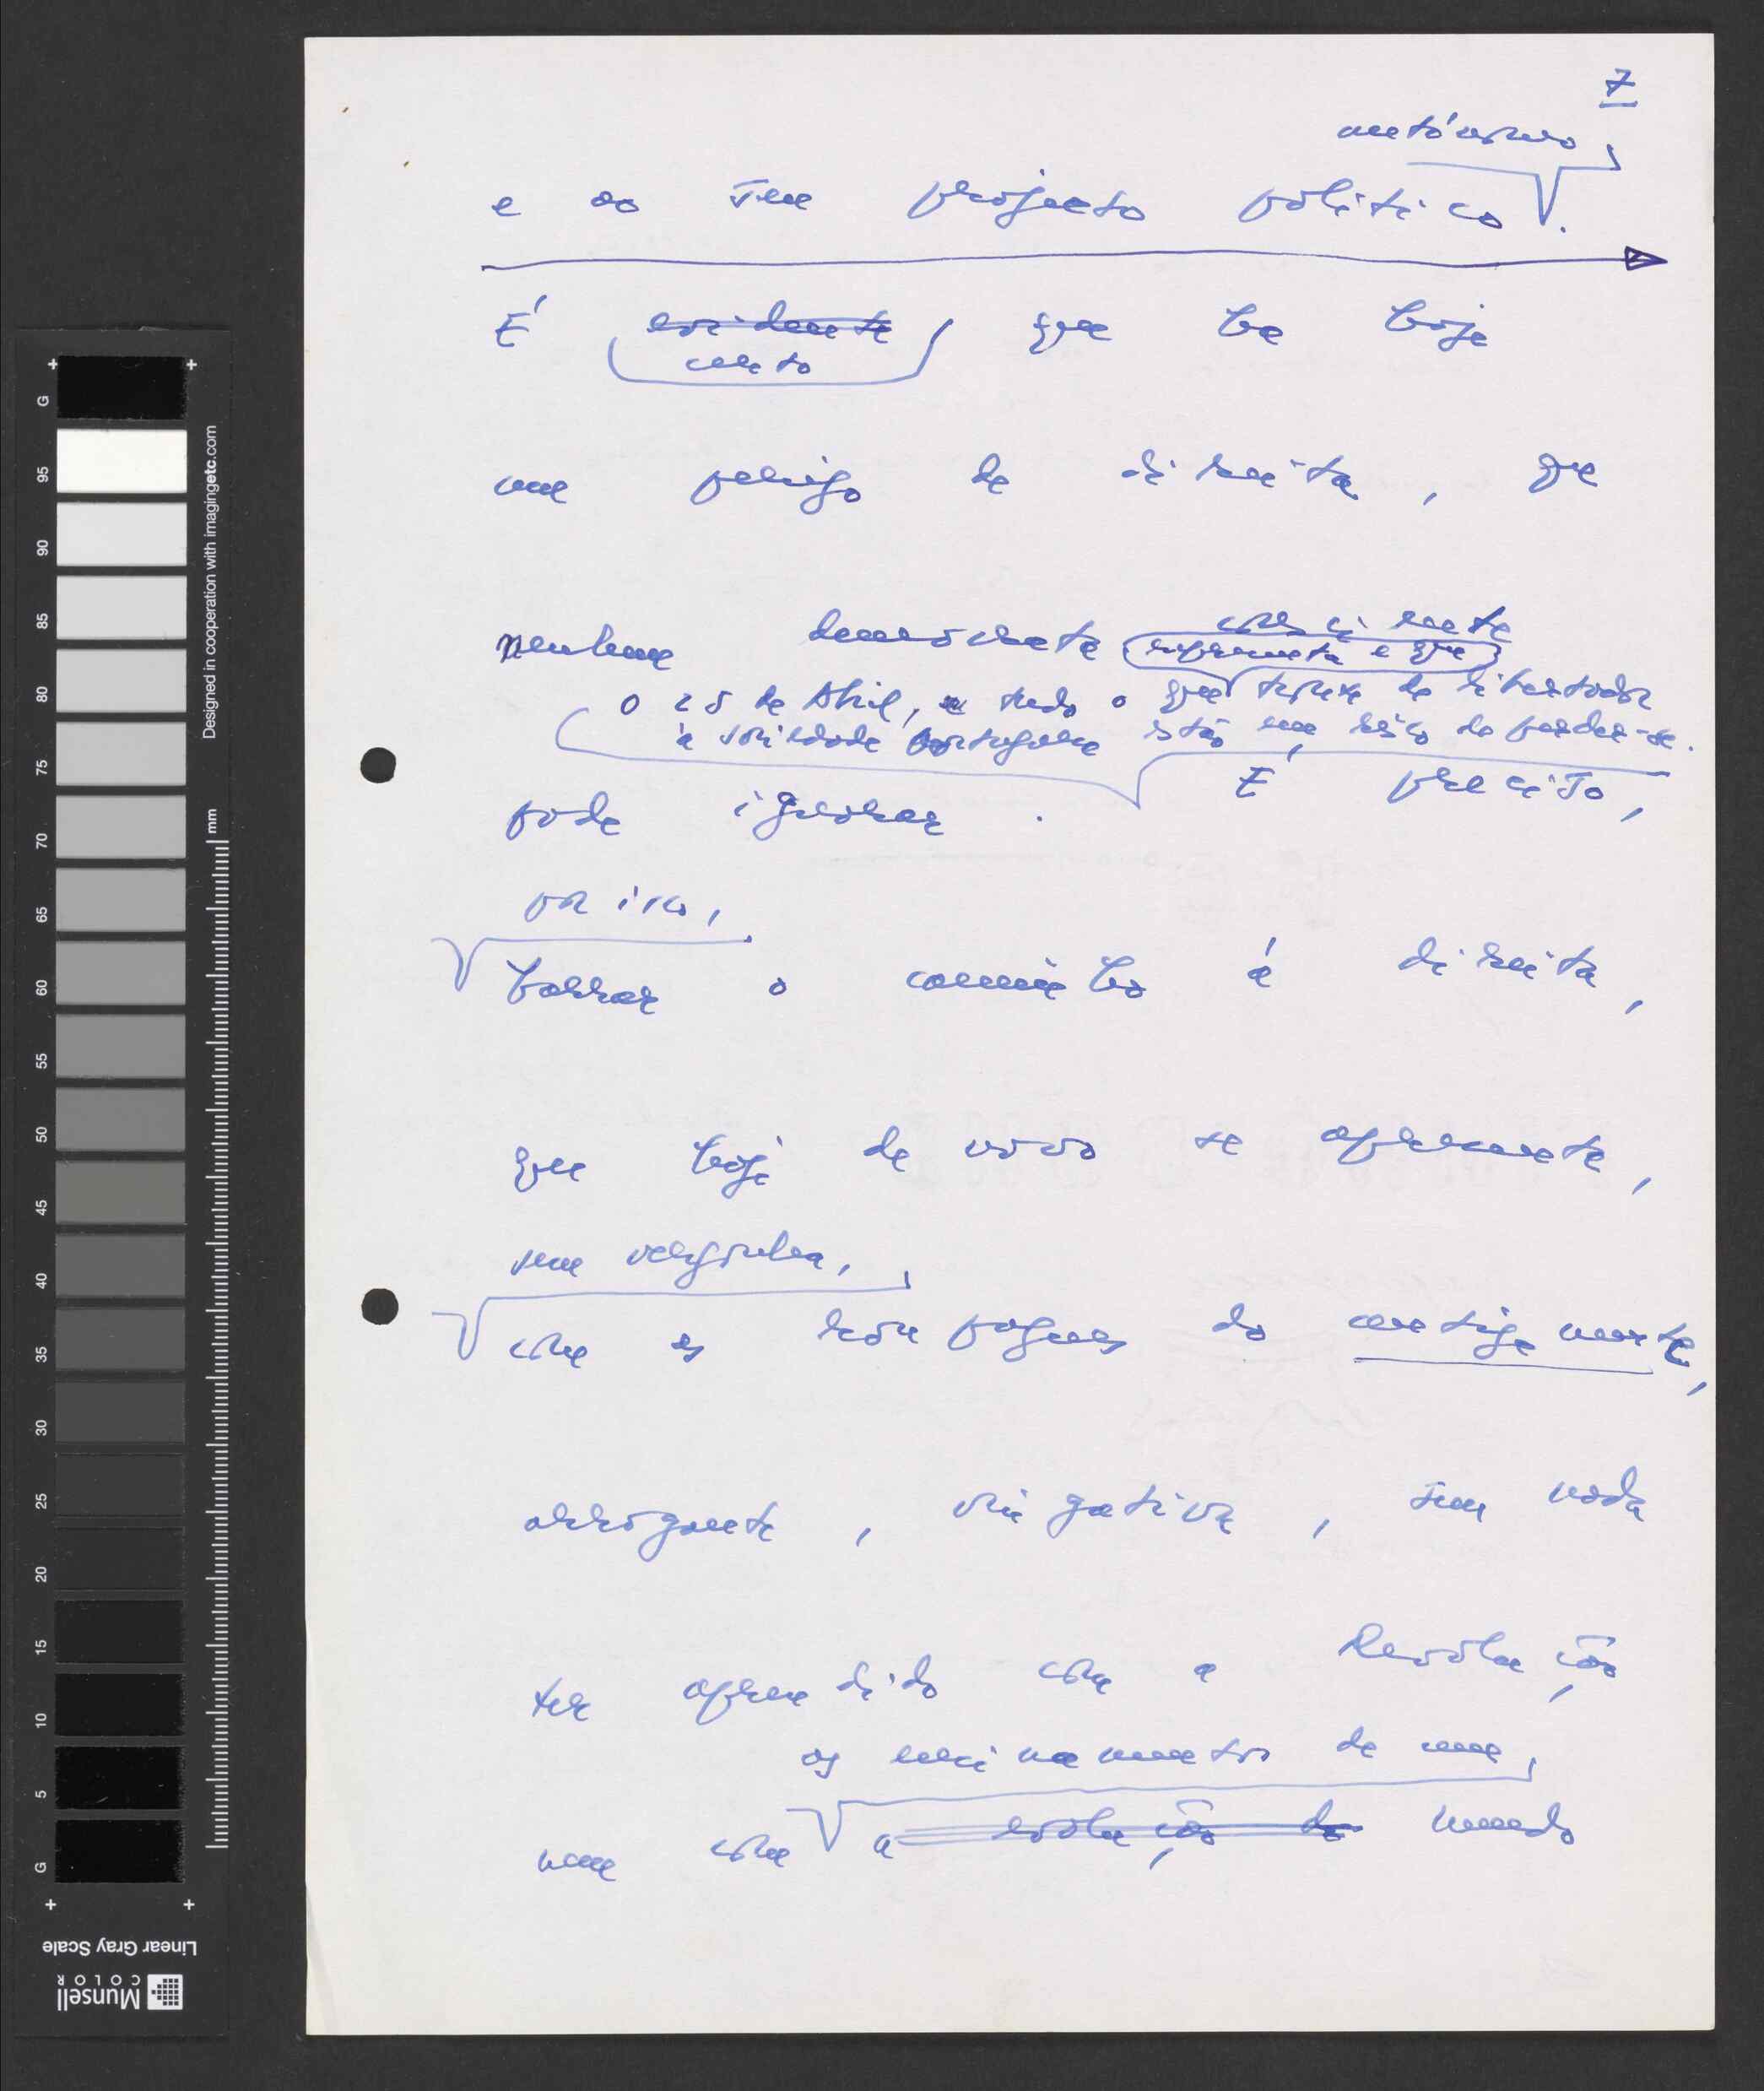 7
autónomo
e ao seu projecto político.
É evidente que há hoje
certo
um perigo de direita, que
consciente
nenhum democrata representa e que
o 25 de Abril, e tudo o que trouxe de libertador
à sociedade portuguesa estão em risco de perder-se.
pode ignorar. É preciso,
por isso,
barrar o caminho à direita,
que hoje de novo se apresenta,
sem vergonha,
com as roupagens do antigamente,
arrogante, vingativa, sem nada
ter aprendido com a Revolução
os ensinamentos de um
nem com a evolução do mundo
G
95
90
85
80
75
70
65
60
55
50
45
40
35
30
25
20
15
10
5
G
mm
Designed in cooperation with imagingetc.com
Linear Gray Scale
Munsell
COLOR